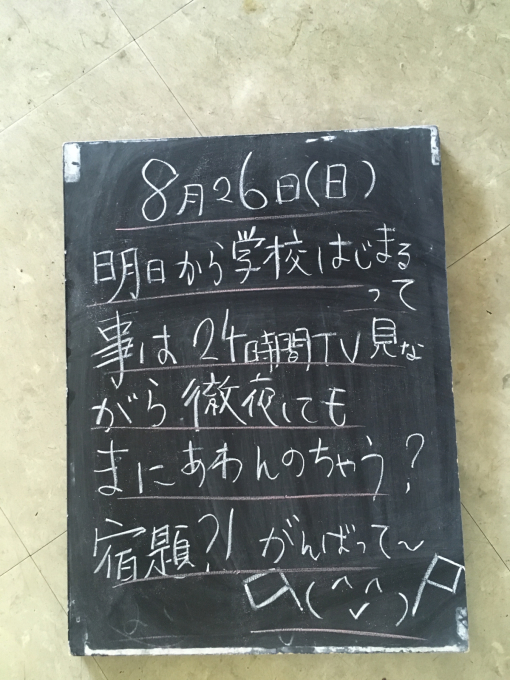 8月26日(日)
明日から学校はじまる
って
事は24時間TV見な
がら徹夜しても
まにあわんのちゃう?
宿題?! がんばって〜
(^◡^)